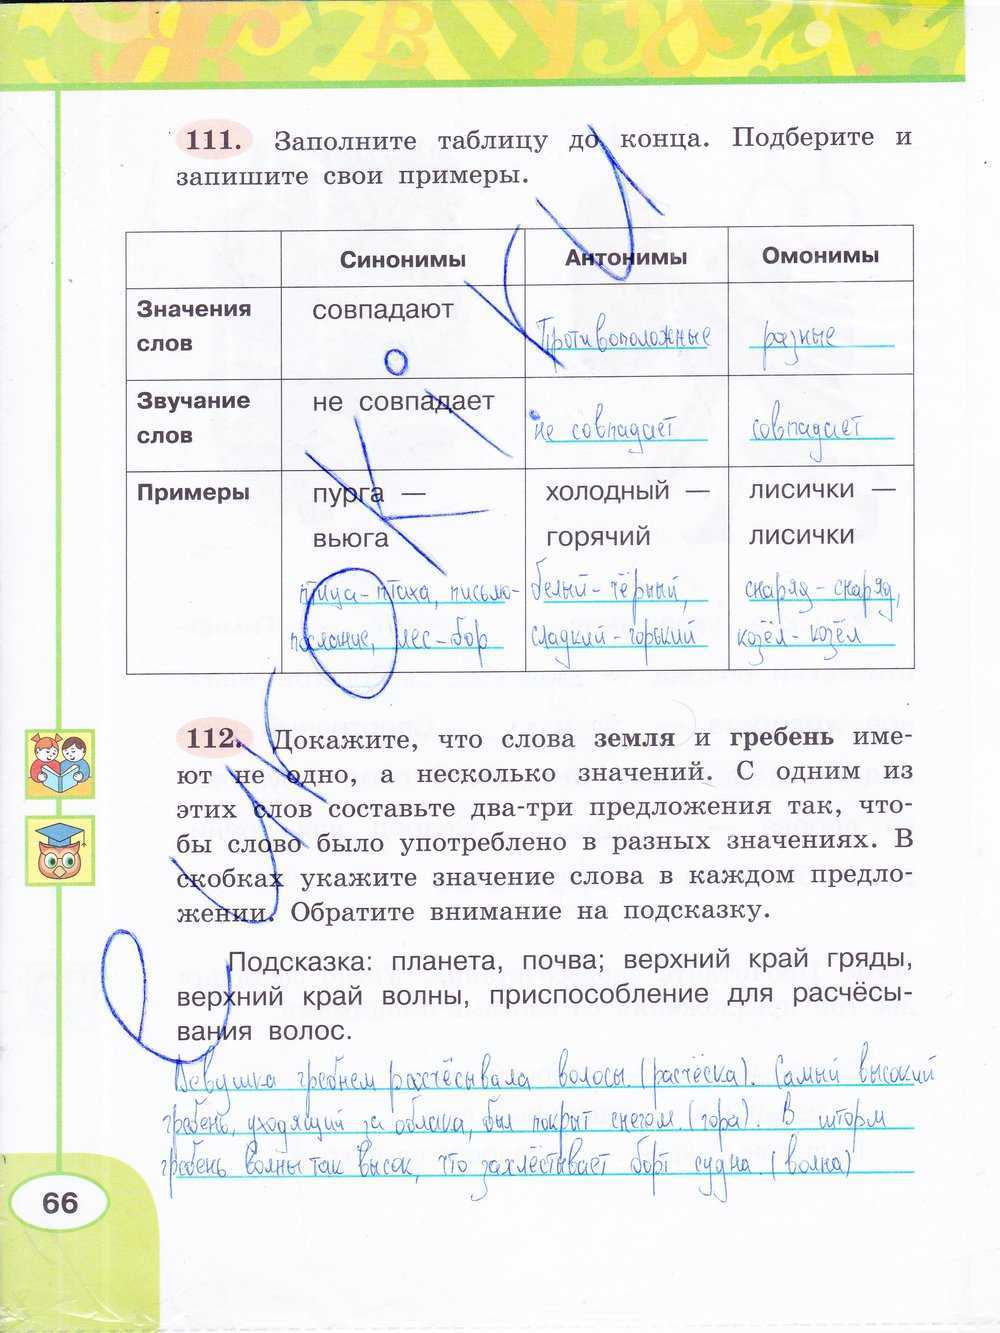 111. Заполните таблицу до конца. Подберите и
запишите свои примеры.
Синонимы Антонимы Омонимы
Значения слов совпадают Противоположные разные
Звучание слов не совпадает не совпадает совпадает
Примеры пурга — холодный — лисички —
вьюга горячий лисички
птица-птаха, письмо- белый-чёрный, снаряд-снаряд,
послание, лес-бор сладкий-горький козёл-козёл
112. Докажите, что слова земля и гребень име-
ют не одно, а несколько значений. С одним из
этих слов составьте два-три предложения так, что-
бы слово было употреблено в разных значениях. В
скобках укажите значение слова в каждом предло-
жении. Обратите внимание на подсказку.
Подсказка: планета, почва; верхний край гряды,
верхний край волны, приспособление для расчёсы-
вания волос.
Девушка гребнем расчёсывала волосы (расчёска). Самый высокий
гребень, уходящий за облака, был покрыт снегом. (гора). В шторм
гребень волны так высок, что захлёстывает борт судна. (волна)
66